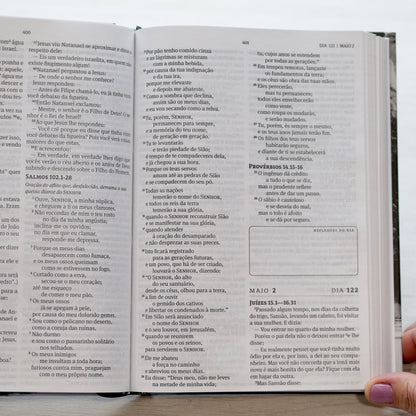 400
⁴⁷Jesus viu Natanael se aproximar e disse a
respeito dele:
— Eis um verdadeiro israelita, em quem não
existe fingimento algum!
⁴⁸Natanael perguntou a Jesus:
— De onde o senhor me conhece?
Jesus respondeu:
— Antes de Filipe chamá-lo, eu já tinha visto
você debaixo da figueira.
⁴⁹Então Natanael exclamou:
— Mestre, o senhor é o Filho de Deus! O se-
nhor é o Rei de Israel!
⁵⁰Ao que Jesus lhe respondeu:
— Você crê porque eu disse que tinha visto
você debaixo da figueira? Pois você verá coisas
maiores do que estas.
⁵¹E acrescentou:
— Em verdade, em verdade lhes digo que
vocês verão o céu aberto e os anjos de Deus
subindo e descendo sobre o Filho do Homem.
SALMOS 102.1-28
Oração do aflito que, desfalecido, derrama o seu
queixume diante do SENHOR
¹Ouve, SENHOR, a minha súplica,
e cheguem a ti os meus clamores.
²Não escondas de mim o teu rosto
no dia da minha angústia;
inclina-me os ouvidos;
no dia em que eu clamar,
responde-me depressa.
³Porque os meus dias
desaparecem como fumaça,
e os meus ossos queimam
como se estivessem no fogo.
⁴Cortado como a erva
secou-se o meu coração;
até me esqueço
de comer o meu pão.
⁵Os meus ossos
já se apegam à pele,
por causa do meu dolorido gemer.
⁶Sou como o pelicano no deserto,
como a coruja das ruínas.
⁷Não durmo
e sou como o passarinho solitário
no telhado.
⁸Os meus inimigos
me insultam a toda hora;
furiosos contra mim, praguejam
com o meu próprio nome.
401
⁹Por pão tenho comido cinza
e as lágrimas se misturam
com a minha bebida,
¹⁰por causa da tua indignação
e da tua ira,
porque me elevaste
e depois me abateste.
¹¹Como a sombra que declina,
assim são os meus dias,
e eu vou secando como a relva.
¹²Tu, porém, SENHOR,
permaneces para sempre,
e a memória do teu nome,
de geração em geração.
¹³Tu te levantarás
e terás piedade de Sião;
é tempo de te compadeceres dela,
e já chegou a sua hora.
¹⁴Porque os teus servos
amam até as pedras de Sião
e se compadecem do seu pó.
¹⁵Todas as nações
temerão o nome do SENHOR,
e todos os reis da terra
temerão a sua glória,
¹⁶quando o SENHOR reconstruir Sião
e se manifestar na sua glória,
¹⁷quando atender
à oração do desamparado
e não desprezar as suas preces.
¹⁸Isto ficará registrado
para as gerações futuras,
e um povo, que há de ser criado,
louvará o SENHOR, dizendo:
¹⁹"O SENHOR, do alto
do seu santuário,
desde os céus, olhou para a terra,
²⁰a fim de ouvir
o gemido dos cativos
e libertar os condenados à morte."
²¹Em Sião será anunciado
o nome do SENHOR
e o seu louvor, em Jerusalém,
²²quando se reunirem
os povos e os reinos,
para servirem o SENHOR.
²³Ele me abateu
a força no caminho
e abreviou os meus dias.
²⁴Eu disse: "Deus meu, não me leves
na metade de minha vida;
DIA 121 | MAIO 1
tu, cujos anos se estendem
por todas as gerações."
²⁵Em tempos remotos, lançaste
os fundamentos da terra;
e os céus são obra das tuas mãos.
²⁶Eles perecerão,
mas tu permaneces;
todos eles envelhecerão
como veste,
como roupa os mudarás,
e serão mudados.
²⁷Tu, porém, és sempre o mesmo,
e os teus anos jamais terão fim.
²⁸Os filhos dos teus servos
habitarão seguros,
e diante de ti se estabelecerá
a sua descendência.
PROVÉRBIOS 14.15-16
¹⁵O ingênuo dá crédito
a tudo o que se diz,
mas o prudente reflete
antes de dar um passo.
¹⁶O sábio é cauteloso
e se desvia do mal,
mas o tolo é afoito
e se dá por seguro.
REFLEXÕES DO DIA
MAIO 2 DIA 122
JUÍZES 15.3—16.31
¹Passado algum tempo, nos dias da colheita
do trigo, Sansão, levando um cabrito, foi visitar
a sua mulher. E dizia:
— Vou entrar no quarto da minha mulher.
Porém o pai dela não o deixou entrar ²e lhe
disse:
— Eu realmente pensei que você tinha muito
ódio por ela e, por isso, a dei ao seu compa-
nheiro. Mas você não concorda que a irmã mais
nova é mais bonita do que ela? Fique com ela
em lugar da outra.
³Mas Sansão disse: